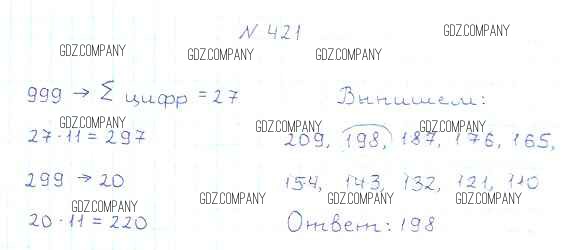 N 421
GDZ.COMPANY GDZ.COMPANY GDZ.COMPANY GDZ.COMPANY
999 → Σ цифр = 27 Выпишем:
GDZ.COMPANY GDZ.COMPANY GDZ.COMPANY
27·11 = 297 209, 198, 187, 176, 165,
299 → 20 154, 143, 132, 121, 110
GDZ.COMPANY GDZ.COMPANY GDZ.COMPANY GDZ.COMPANY
20·11 = 220 Ответ: 198